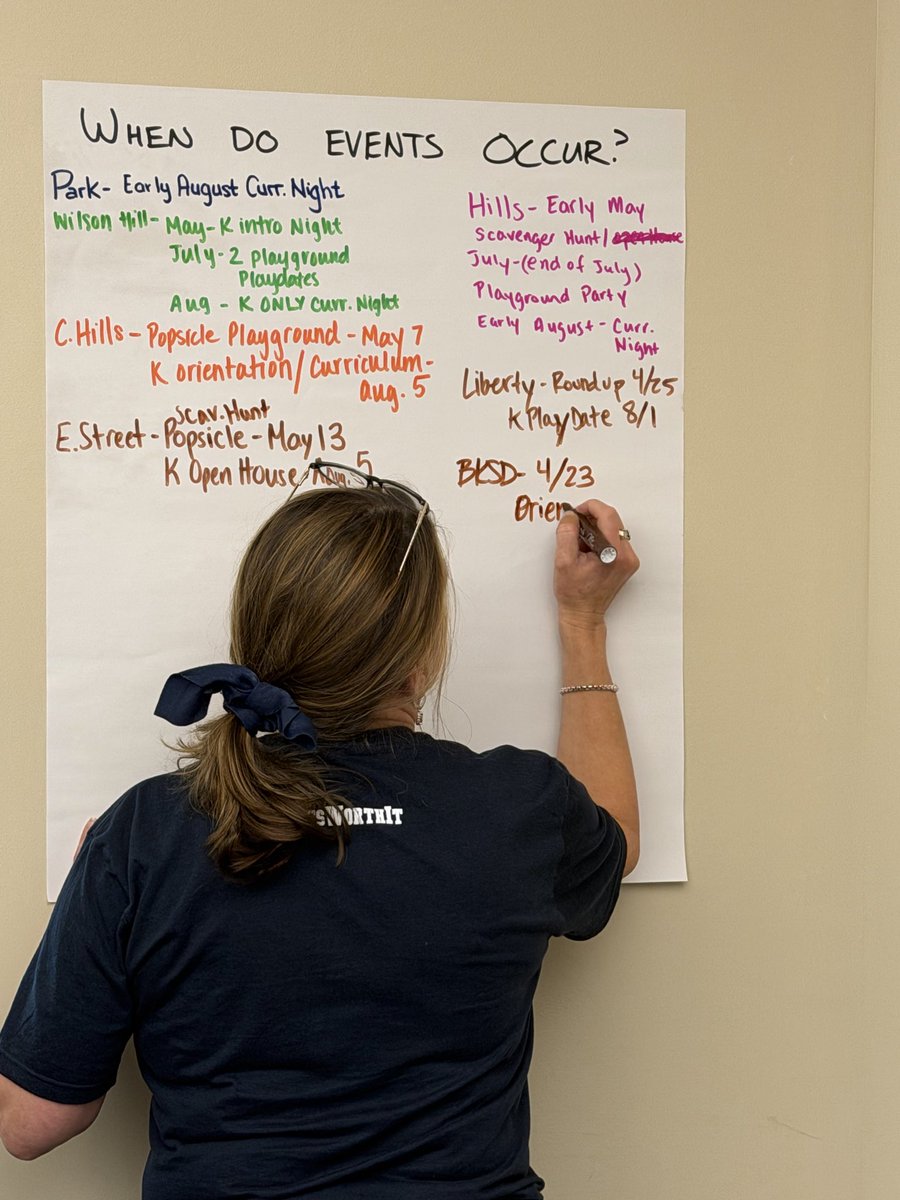 WHEN DO EVENTS OCCUR?
Park- Early August Curr. Night
Wilson Hill- May- K intro Night
July- 2 playground
Playdates
Aug - K ONLY Curr. Night
C. Hills - Popsicle Playground - May 7
K orientation/Curriculum-
aug. 5
Scav. Hunt
E. Street - Popsicle - May 13
K Open House Aug. 5
Hills - Early May
Scavenger Hunt/
July-(end of July)
Playground Party
Early August - Curr.
Night
Liberty - Roundup 4/25
K Play Date 8/1
BKSD- 4/23
Orien
WORTHIT